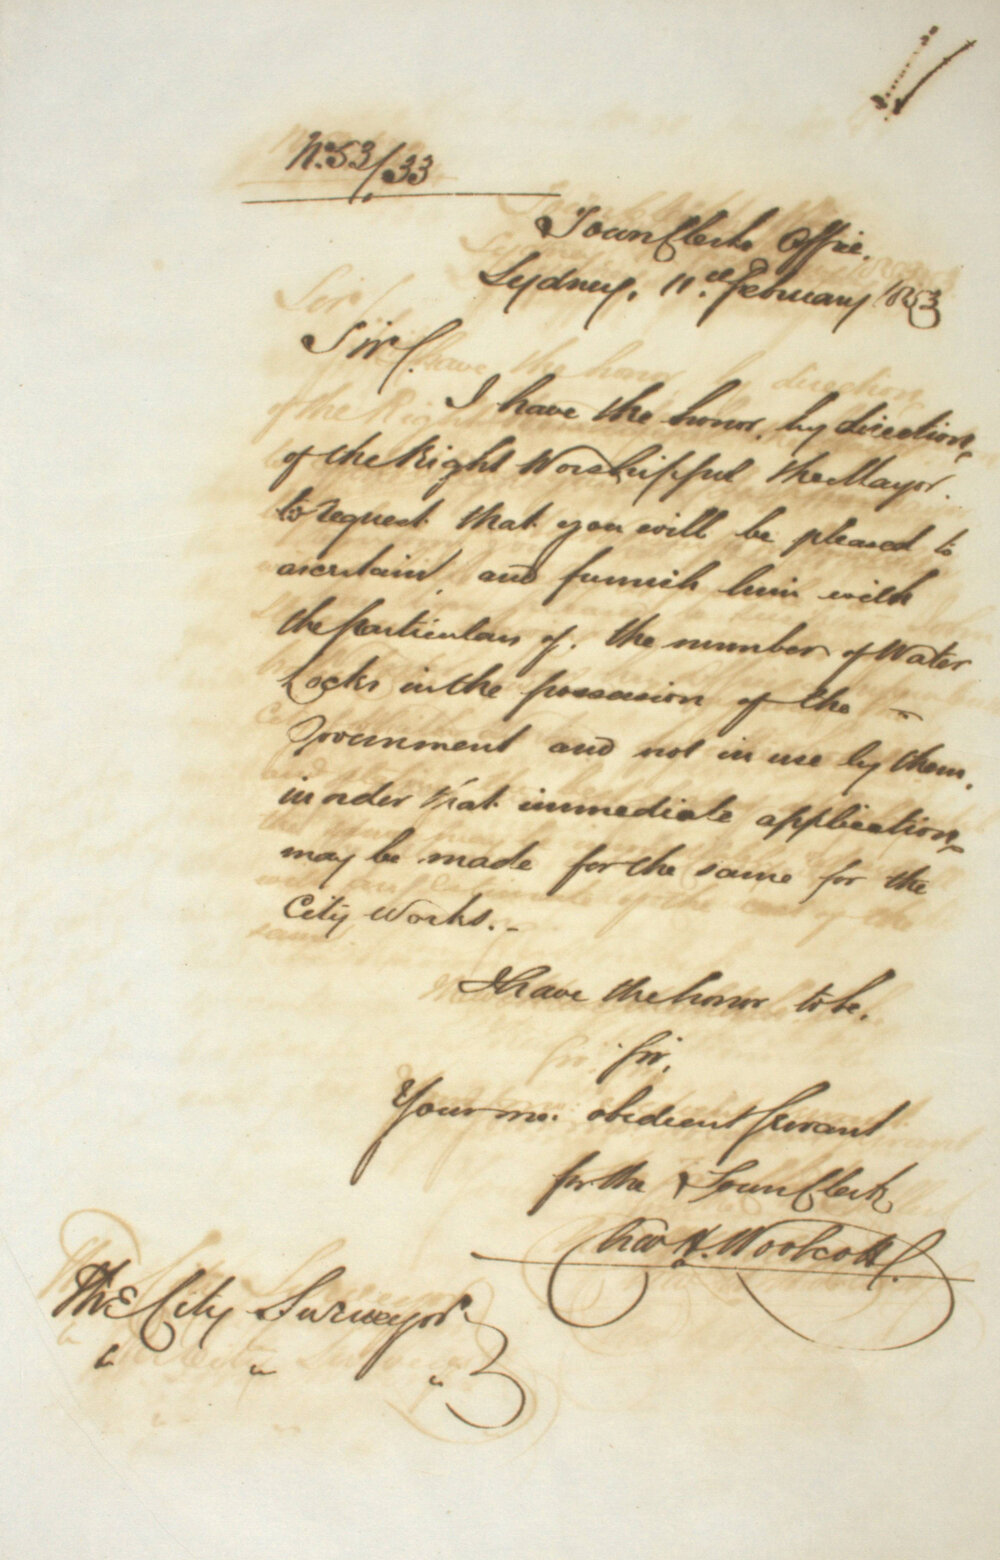 No. 53/33
Town Clerks Office.
Sydney, 11th February 1853
Sir,
I have the honor, by direction,
of the Right Worshipful the Mayor.
to request that you will be pleased to
ascertain, and furnish him with
the particulars of. the number of Water
Cocks in the possession of the –
Government and not in use by them,
in order that immediate application,
may be made for the same for the
City Works. –
I have the honor to be,
Sir,
Your mo. obedient Servant
for the Town Clerk
Chas H. Woolcott
The City Surveyor.
" " "